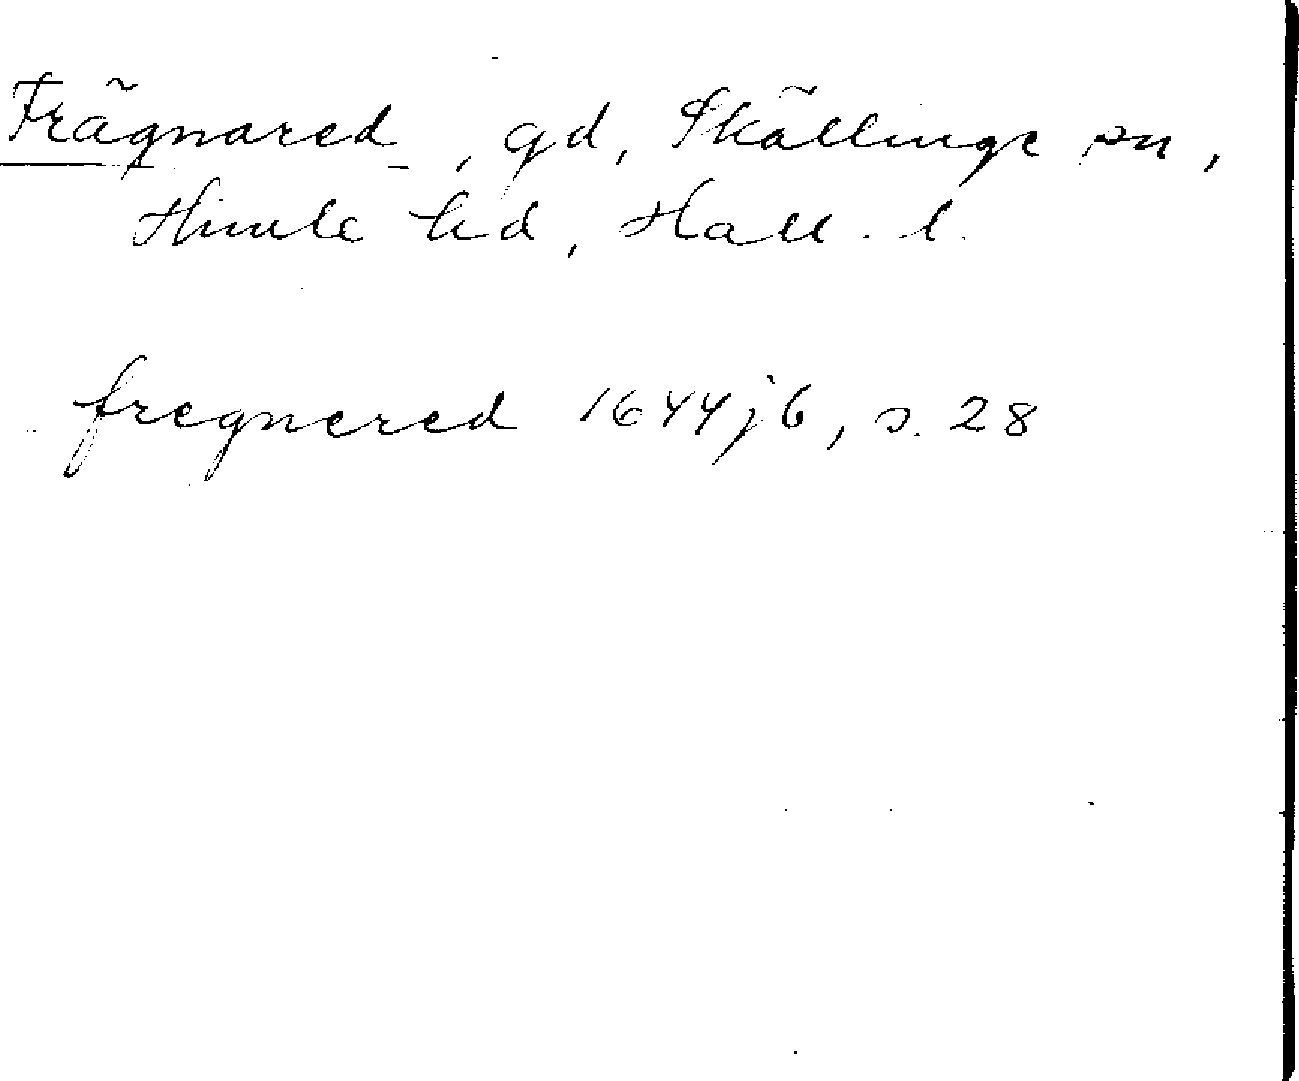 Frägnared, gd, Skällinge sn,
Himle hd, Hall. l.
fregnered 1644jb, s. 28